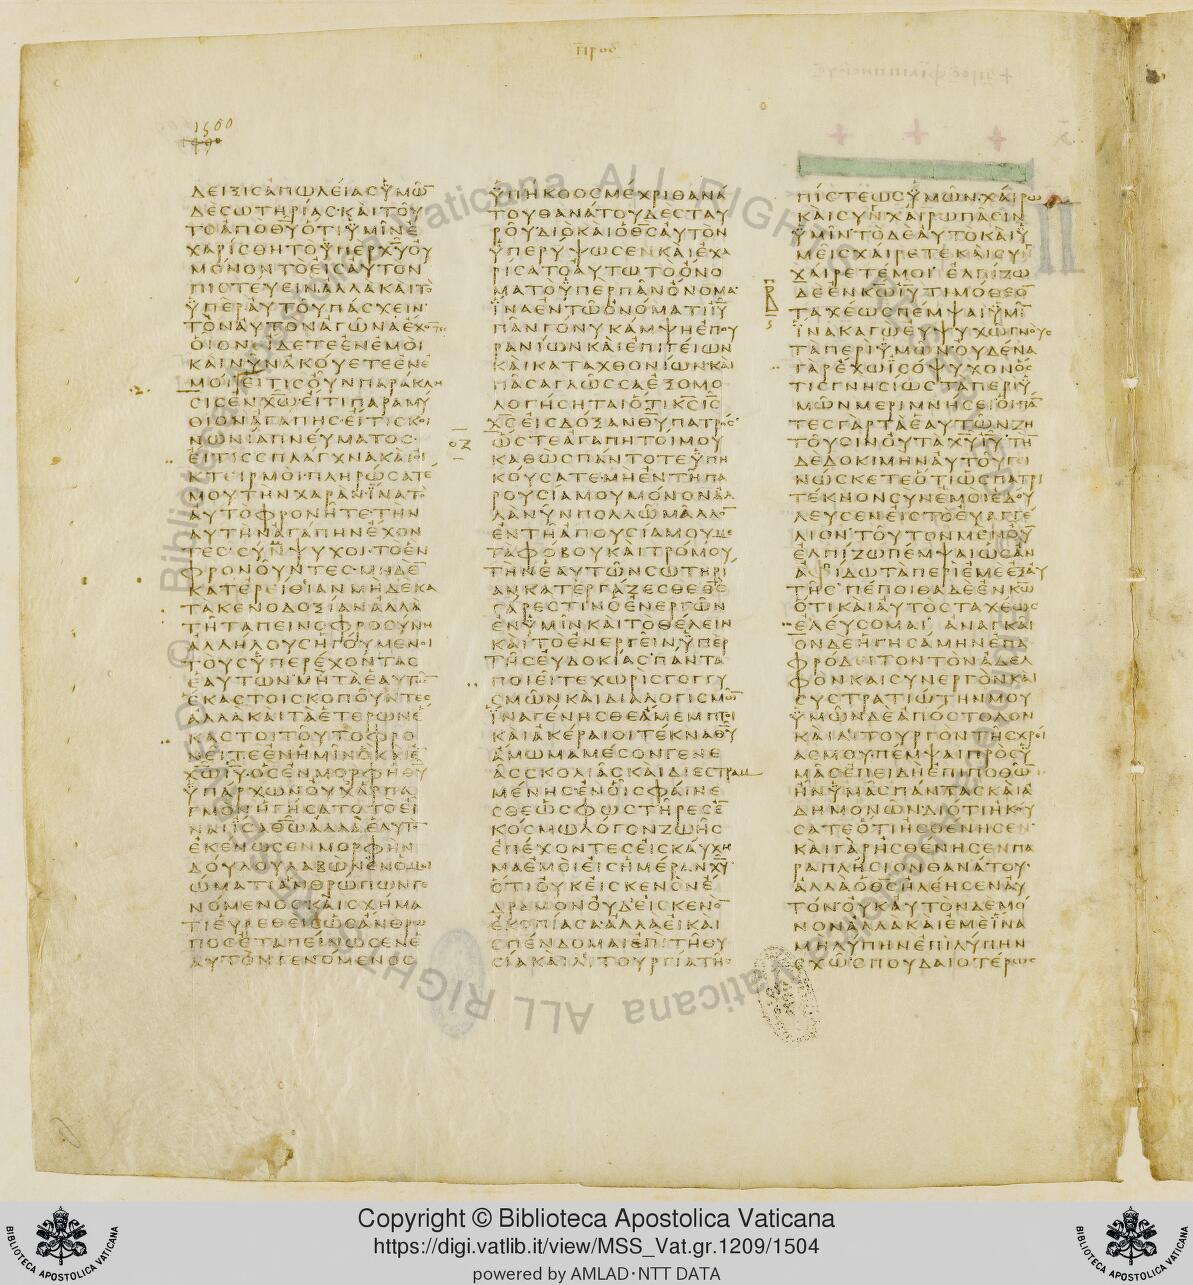 Προς
1500
ΔΕΙΞΙϹΑΠΩΛΕΙΑϹΥΜΩ̅
ΔΕϹΩΤΗΡΙΑϹΚΑΙΤΟΥ
ΤΟΑΠΟΘ̅Υ̅ΟΤΙΥΜΙΝΕ
ΧΑΡΙϹΘΗΤΟΥΠΕΡΧ̅Υ̅ΟΥ
ΜΟΝΟΝΤΟΕΙϹΑΥΤΟΝ
ΠΙϹΤΕΥΕΙΝΑΛΛΑΚΑΙΤΟ
ΥΠΕΡΑΥΤΟΥΠΑϹΧΕΙΝ·
ΤΟΝΑΥΤΟΝΑΓΩΝΑΕΧΟ̅ΤΕϹ
ΟΙΟΝΕΙΔΕΤΕΕΝΕΜΟΙ
ΚΑΙΝΥΝΑΚΟΥΕΤΕΕΝΕ
ΜΟΙ ΕΙΤΙϹΟΥΝΠΑΡΑΚΛΗ
ϹΙϹΕΝΧ̅Ω̅·ΕΙΤΙΠΑΡΑΜΥ
ΘΙΟΝΑΓΑΠΗϹ·ΕΙΤΙϹΚΟΙ
ΝΩΝΙΑΠΝΕΥΜΑΤΟϹ·
ΕΙΤΙϹϹΠΛΑΓΧΝΑΚΑΙΟΙ
ΚΤΕΙΡΜΟΙ·ΠΛΗΡΩϹΑΤΕ
ΜΟΥΤΗΝΧΑΡΑΝΙΝΑΤΟ
ΑΥΤΟΦΡΟΝΗΤΕ·ΤΗΝ
ΑΥΤΗΝΑΓΑΠΗΝΕΧΟΝ
ΤΕϹ·ϹΥΝΨΥΧΟΙ·ΤΟΕΝ
ΦΡΟΝΟΥΝΤΕϹ·ΜΗΔΕ̅
ΚΑΤΕΡΕΙΘΙΑΝΜΗΔΕΚΑ
ΤΑΚΕΝΟΔΟΞΙΑΝΑΛΛΑ
ΤΗΤΑΠΕΙΝΟΦΡΟϹΥΝΗ
ΑΛΛΗΛΟΥϹΗΓΟΥΜΕΝΟΙ
ΤΟΥϹΥΠΕΡΕΧΟΝΤΑϹ
ΕΑΥΤΩΝΜΗΤΑΕΑΥΤΩ̅
ΕΚΑϹΤΟΙϹΚΟΠΟΥΝΤΕϹ
ΑΛΛΑΚΑΙΤΑΕΤΕΡΩΝΕ
ΚΑϹΤΟΙΤΟΥΤΟΦΡΟ
ΝΕΙΤΕΕΝΗΜΙΝΟΚΑΙΕ̅
Χ̅Ω̅Ι̅Υ̅·ΟϹΕΝΜΟΡΦΗΘ̅Υ̅
ΥΠΑΡΧΩΝΟΥΧΑΡΠΑ
ΓΜΟΝΗΓΗϹΑΤΟΤΟΕΙ
ΝΑΙΙϹΑΘ̅Ω̅ΑΛΛΑΕΑΥΤΟ̅
ΕΚΕΝΩϹΕΝΜΟΡΦΗΝ
ΔΟΥΛΟΥΛΑΒΩΝΕΝΟΜΟΙ
ΩΜΑΤΙΑΝΘΡΩΠΩΝΓΕ
ΝΟΜΕΝΟϹΚΑΙϹΧΗΜΑ
ΤΙΕΥΡΕΘΕΙϹΩϹΑΝΘΡΩ
ΠΟϹΕΤΑΠΕΙΝΩϹΕΝΕ
ΑΥΤΟΝΓΕΝΟΜΕΝΟϹ
ΥΠΗΚΟΟϹΜΕΧΡΙΘΑΝΑ
ΤΟΥΘΑΝΑΤΟΥΔΕϹΤΑΥ
ΡΟΥΔΙΟΚΑΙΟΘ̅Ϲ̅ΑΥΤΟΝ
ΥΠΕΡΥΨΩϹΕΝΚΑΙΕΧΑ
ΡΙϹΑΤΟΑΥΤΩΤΟΟΝΟ
ΜΑΤΟΥΠΕΡΠΑΝΟΝΟΜΑ·
ΙΝΑΕΝΤΩΟΝΟΜΑΤΙΙ̅Υ̅
ΠΑΝΓΟΝΥΚΑΜΨΗΕΠΟΥ
ΡΑΝΙΩΝΚΑΙΕΠΙΓΕΙΩΝ
ΚΑΙΚΑΤΑΧΘΟΝΙΩΝ·ΚΑΙ
ΠΑϹΑΓΛΩϹϹΑΕΞΟΜΟ
ΛΟΓΗϹΗΤΑΙΟΤΙΚ̅Ϲ̅Ι̅Ϲ̅
Χ̅Ϲ̅ΕΙϹΔΟΞΑΝΘ̅Υ̅ΠΑΤΡΟϹ·
ΩϹΤΕΑΓΑΠΗΤΟΙΜΟΥ
ΚΑΘΩϹΠΑΝΤΟΤΕΥΠΗ
ΚΟΥϹΑΤΕ·ΜΗΕΝΤΗΠΑ
ΡΟΥϹΙΑΜΟΥΜΟΝΟΝΑΛ
ΛΑΝΥΝΠΟΛΛΩΜΑΛΛΟ̅
ΕΝΤΗΑΠΟΥϹΙΑΜΟΥΜΕ
ΤΑΦΟΒΟΥΚΑΙΤΡΟΜΟΥ
ΤΗΝΕΑΥΤΩΝϹΩΤΗΡΙ
ΑΝΚΑΤΕΡΓΑΖΕϹΘΕΘ̅Ϲ̅
ΓΑΡΕϹΤΙΝΟΕΝΕΡΓΩΝ
ΕΝΥΜΙΝΚΑΙΤΟΘΕΛΕΙΝ
ΚΑΙΤΟΕΝΕΡΓΕΙΝΥΠΕΡ
ΤΗϹΕΥΔΟΚΙΑϹΠΑΝΤΑ
ΠΟΙΕΙΤΕΧΩΡΙϹΓΟΓΓΥ
ϹΜΩΝΚΑΙΔΙΑΛΟΓΙϹΜΩ̅
ΙΝΑΓΕΝΗϹΘΕΑΜΕΜΠΤΟΙ
ΚΑΙΑΚΕΡΑΙΟΙΤΕΚΝΑΘ̅Υ̅
ΑΜΩΜΑΜΕϹΟΝΓΕΝΕ
ΑϹϹΚΟΛΙΑϹΚΑΙΔΙΕϹΤΡΑΜ
ΜΕΝΗϹΕΝΟΙϹΦΑΙΝΕ
ϹΘΕΩϹΦΩϹΤΗΡΕϹΕ̅
ΚΟϹΜΩΛΟΓΟΝΖΩΗϹ
ΕΠΕΧΟΝΤΕϹΕΙϹΚΑΥΧΗ
ΜΑΕΜΟΙΕΙϹΗΜΕΡΑΝΧ̅Υ̅
ΟΤΙΟΥΚΕΙϹΚΕΝΟΝΕ
ΔΡΑΜΟΝΟΥΔΕΙϹΚΕΝΟ̅
ΕΚΟΠΙΑϹΑ·ΑΛΛΑΕΙΚΑΙ
ϹΠΕΝΔΟΜΑΙΕΠΙΤΗΘΥ
ϹΙΑΚΑΙΛΙΤΟΥΡΓΙΑΤΗϹ
ΠΙϹΤΕΩϹΥΜΩΝ·ΧΑΙΡΩ
ΚΑΙϹΥΝΧΑΙΡΩΠΑϹΙΝ
ΥΜΙΝΤΟΔΕΑΥΤΟΚΑΙΥ
ΜΕΙϹΧΑΙΡΕΤΕΚΑΙϹΥΝ
ΧΑΙΡΕΤΕΜΟΙ ΕΛΠΙΖΩ
ΔΕΕΝΚ̅Ω̅Ι̅Υ̅ΤΙΜΟΘΕΟ̅
ΤΑΧΕΩϹΠΕΜΨΑΙΥΜΙ̅
ΙΝΑΚΑΓΩΕΥΨΥΧΩΓΝΟΥϹ
ΤΑΠΕΡΙΥΜΩΝ·ΟΥΔΕΝΑ
ΓΑΡΕΧΩΙϹΟΨΥΧΟΝΟϹ
ΤΙϹΓΝΗϹΙΩϹΤΑΠΕΡΙΥ
ΜΩΝΜΕΡΙΜΝΗϹΕΙΟΙΠΑ̅
ΤΕϹΓΑΡΤΑΕΑΥΤΩΝΖΗ
ΤΟΥϹΙΝΟΥΤΑΧ̅Υ̅Ι̅Υ̅·ΤΗ̅
ΔΕΔΟΚΙΜΗΝΑΥΤΟΥΓΕΙ
ΝΩϹΚΕΤΕΟΤΙΩϹΠΑΤΡΙ
ΤΕΚΝΟΝϹΥΝΕΜΟΙΕΔΟΥ
ΛΕΥϹΕΝΕΙϹΤΟΕΥΑΓΓΕ
ΛΙΟΝ·ΤΟΥΤΟΝΜΕΝΟΥ̅
ΕΛΠΙΖΩΠΕΜΨΑΙΩϹΑΝ
ΑΦΙΔΩΤΑΠΕΡΙΕΜΕΕΞΑΥ
ΤΗϹ·ΠΕΠΟΙΘΑΔΕΕΝΚ̅Ω̅
ΟΤΙΚΑΙΑΥΤΟϹΤΑΧΕΩϹ
ΕΛΕΥϹΟΜΑΙ ΑΝΑΓΚΑΙ
ΟΝΔΕΗΓΗϹΑΜΗΝΕΠΑ
ΦΡΟΔΕΙΤΟΝΤΟΝΑΔΕΛ
ΦΟΝΚΑΙϹΥΝΕΡΓΟΝΚΑΙ
ϹΥϹΤΡΑΤΙΩΤΗΝΜΟΥ
ΥΜΩΝΔΕΑΠΟϹΤΟΛΟΝ
ΚΑΙΛΙΤΟΥΡΓΟΝΤΗϹΧΡΕΙ
ΑϹΜΟΥΠΕΜΨΑΙΠΡΟϹΥ
ΜΑϹΕΠΕΙΔΗΕΠΙΠΟΘΩ̅
ΗΝΥΜΑϹΠΑΝΤΑϹΚΑΙΑ
ΔΗΜΟΝΩΝ·ΔΙΟΤΙΗΚΟΥ
ϹΑΤΕΟΤΙΗϹΘΕΝΗϹΕΝ·
ΚΑΙΓΑΡΗϹΘΕΝΗϹΕΝΠΑ
ΡΑΠΛΗϹΙΟΝΘΑΝΑΤΟΥ·
ΑΛΛΑΟΘ̅Ϲ̅ΗΛΕΗϹΕΝΑΥ
ΤΟΝ·ΟΥΚΑΥΤΟΝΔΕΜΟ
ΝΟΝΑΛΛΑΚΑΙΕΜΕΙΝΑ
ΜΗΛΥΠΗΝΕΠΙΛΥΠΗΝ
ϹΧΩϹΠΟΥΔΑΙΟΤΕΡΩϹ
Copyright © Biblioteca Apostolica Vaticana
https://digi.vatlib.it/view/MSS_Vat.gr.1209/1504
powered by AMLAD·NTT DATA
BIBLIOTECA APOSTOLICA VATICANA
BIBLIOTECA APOSTOLICA VATICANA